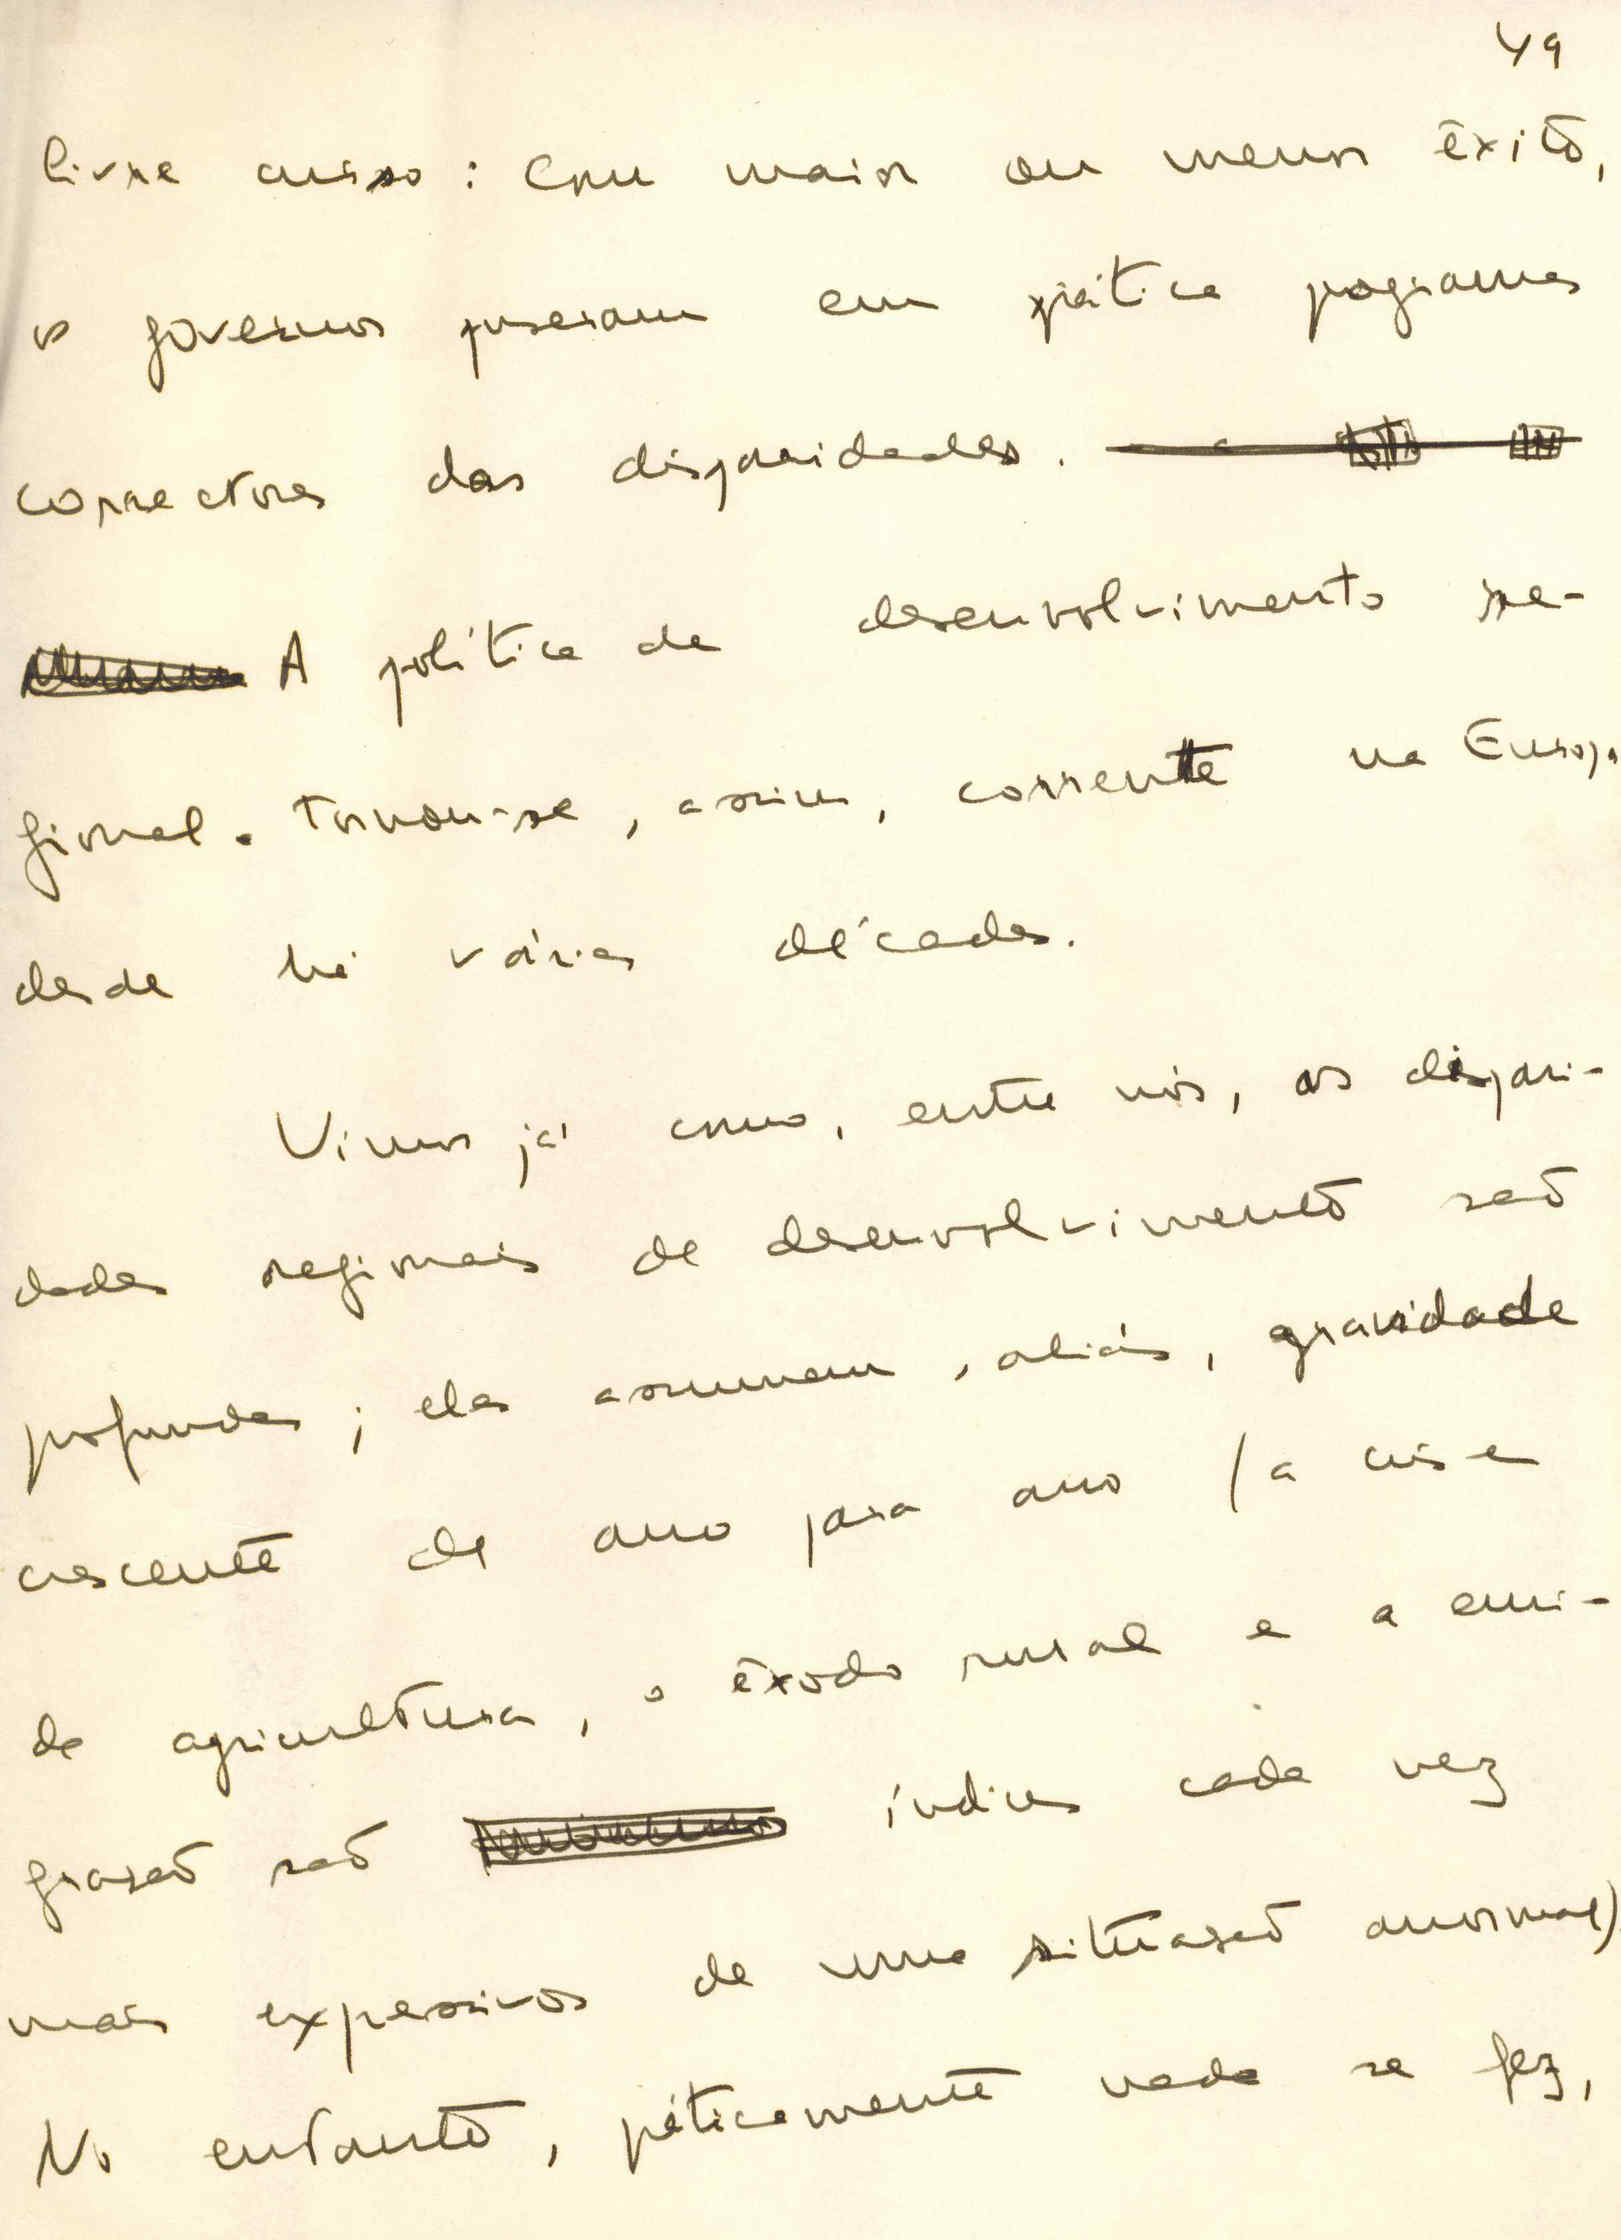 49
livre curso: com maior ou menor êxito,
os governos puseram em prática programas
correctores das disparidades.
A política de desenvolvimento re-
gional. tornou-se, assim, corrente na Europa
desde há várias décadas.
Vimos já como, entre nós, as dispari-
dades regionais de desenvolvimento são
profundas; elas assumem, aliás, gravidade
crescente de ano para ano (a crise
da agricultura, o êxodo rural e a emi-
gração são índices cada vez
mais expressivos de uma situação anormal)
No entanto, pràticamente nada se fez,